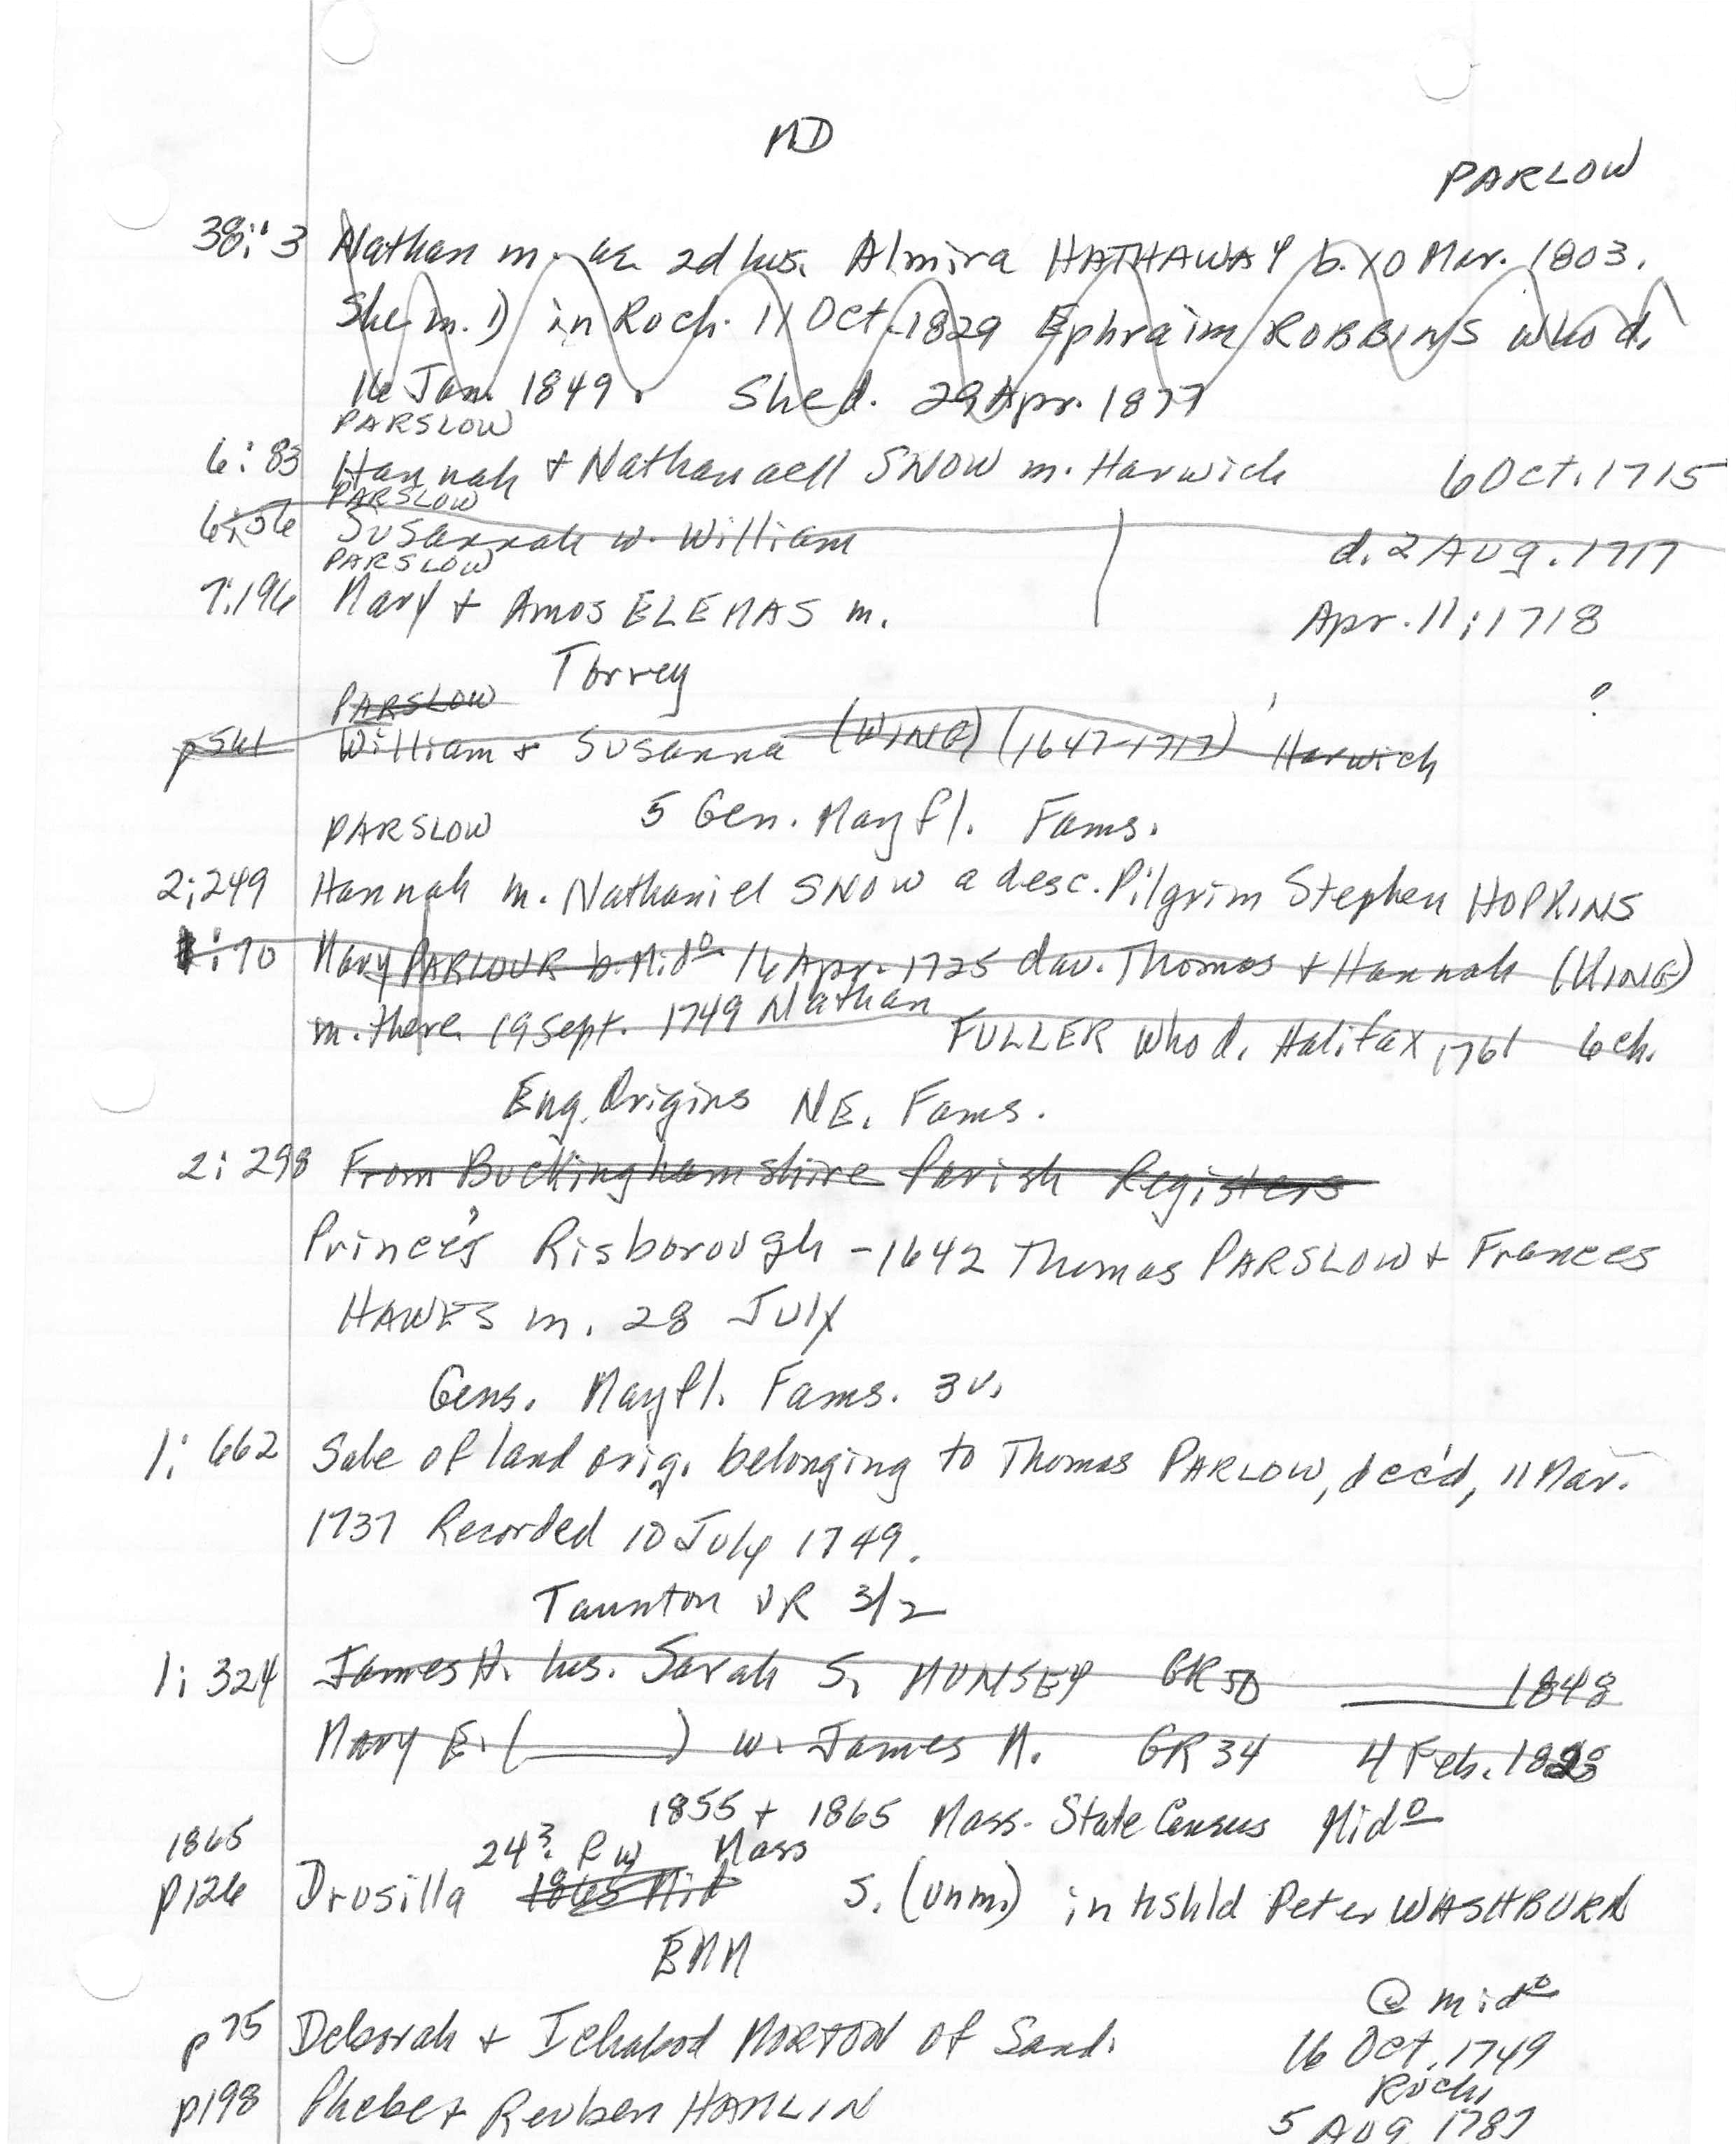 MD
PARLOW
38:3 Nathan m. as 2d hus. Almira HATHAWAY b. 10 Mar. 1803.
She m. 1) in Roch. 11 Oct. 1829 Ephraim ROBBINS who d.
16 Jan. 1849. She d. 29 Apr. 1877
PARSLOW
6:83 Hannah + Nathanaell SNOW m. Harwich 6 Oct. 1715
PARSLOW
6:56 Susannah w. William d. 2 Aug. 1717
PARSLOW
7:196 Mary + Amos ELEMAS m. Apr. 11, 1718
Torrey
PARSLOW ?
p561 William + Susanna (WING) (1647-1717) Harwich
PARSLOW 5 Gen. Mayfl. Fams.
2:249 Hannah m. Nathaniel SNOW a desc. Pilgrim Stephen HOPKINS
:70 Mary PARLOUR b. Mido 16 Apr. 1725 dau. Thomas + Hannah (KING)
m. there 19 Sept. 1749 Nathan FULLER who d. Halifax 1761 6 ch.
Eng. Origins NE. Fams.
2:298 From Buckinghamshire Parish Registers
Princes Risborough - 1642 Thomas PARSLOW + Frances
HAWES m. 28 July
Gens. Mayfl. Fams. 3v.
1:662 Sale of land orig. belonging to Thomas PARLOW, dec'd, 11 Mar.
1737 Recorded 10 July 1749.
Taunton VR 3/2
1:324 James H. hus. Sarah S. MUNSEY GR50 ____ 1848
Mary E. (____) w. James M. GR34 4 Feb. 1828
1855 + 1865 Mass. State Census Mido
1865 24? F W Mass
p126 Drusilla 1865 Mid S. (unm.) in hshld Peter WASHBURN
EMM
@ Mido
p75 Deborah + Ichabod MORTON of Sand. 16 Oct. 1749
Roch.
p198 Phebe + Reuben HAMLIN 5 Aug. 1787